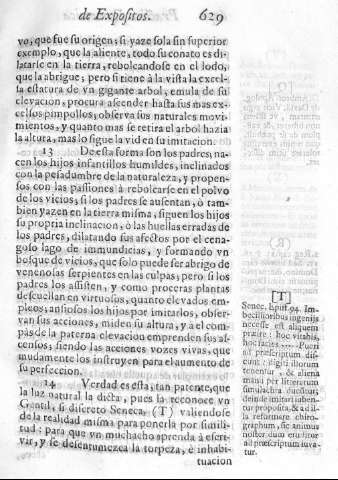 de Expositos. 629
vo, que fue su origen; si yaze sola sin superior
exemplo, que la aliente, todo su conato es di-
latarse en la tierra, rebolcandose en el lodo,
que la abrigue; pero si tiene à la vista la excel-
sa estatura de vn gigante arbol, emula de su
elevacion, procura ascender hasta sus mas ex-
celsos pimpollos, observa sus naturales movi-
mientos, y quanto mas se retira el arbol hazia
la altura, mas lo sigue la vid en su imitacion.
13 De esta forma son los padres, na-
cen los hijos infantillos humildes, inclinados
con la pesadumbre de la naturaleza, y propen-
sos con las passiones à rebolcarse en el polvo
de los vicios, si los padres se ausentan, ò tam-
bien yazen en la tierra misma, siguen los hijos
su propria inclinacion, ò las huellas erradas de
los padres, dilatando sus afectos por el cena-
goso lago de immundicias, y formando vn
bosque de vicios, que solo puede ser abrigo de
venenosas serpientes en las culpas; pero si los
padres los assisten, y como proceras plantas
descuellan en virtuosos, quanto elevados em-
pleos, ansiosos los hijos por imitarlos, obser-
van sus acciones, miden su altura, y a el com-
pàs de la paterna elevacion emprenden sus as-
censos, siendo las acciones vozes vivas, que
mudamente los instruyen para el aumento de
su perfeccion.
14 Verdad es esta, tan patente, que
la luz natural la dicta, pues la reconoce vn
Gentil, si discreto Seneca, (T) valiendose
de la realidad misma para ponerla por simili-
tud: para que vn muchacho aprenda à escri-
vir, y se desentumezca la torpeza, è inhabi-
tuacion
[T]
Senec. Epist. 94. Im-
becillioribus ingeniis
necesse est aliquem
præire: hoc vitabis,
hoc facies. Pueri
ad præscriptum dis-
cunt: digiti illorum
tenentur, & aliena
manu per litterarum
simulachra ducuntur;
deinde imitari iuben-
tur proposita, & ad il-
la reformare chiro-
graphum, sic animus
noster dum eruditur
ad præscriptum iuva-
tur.